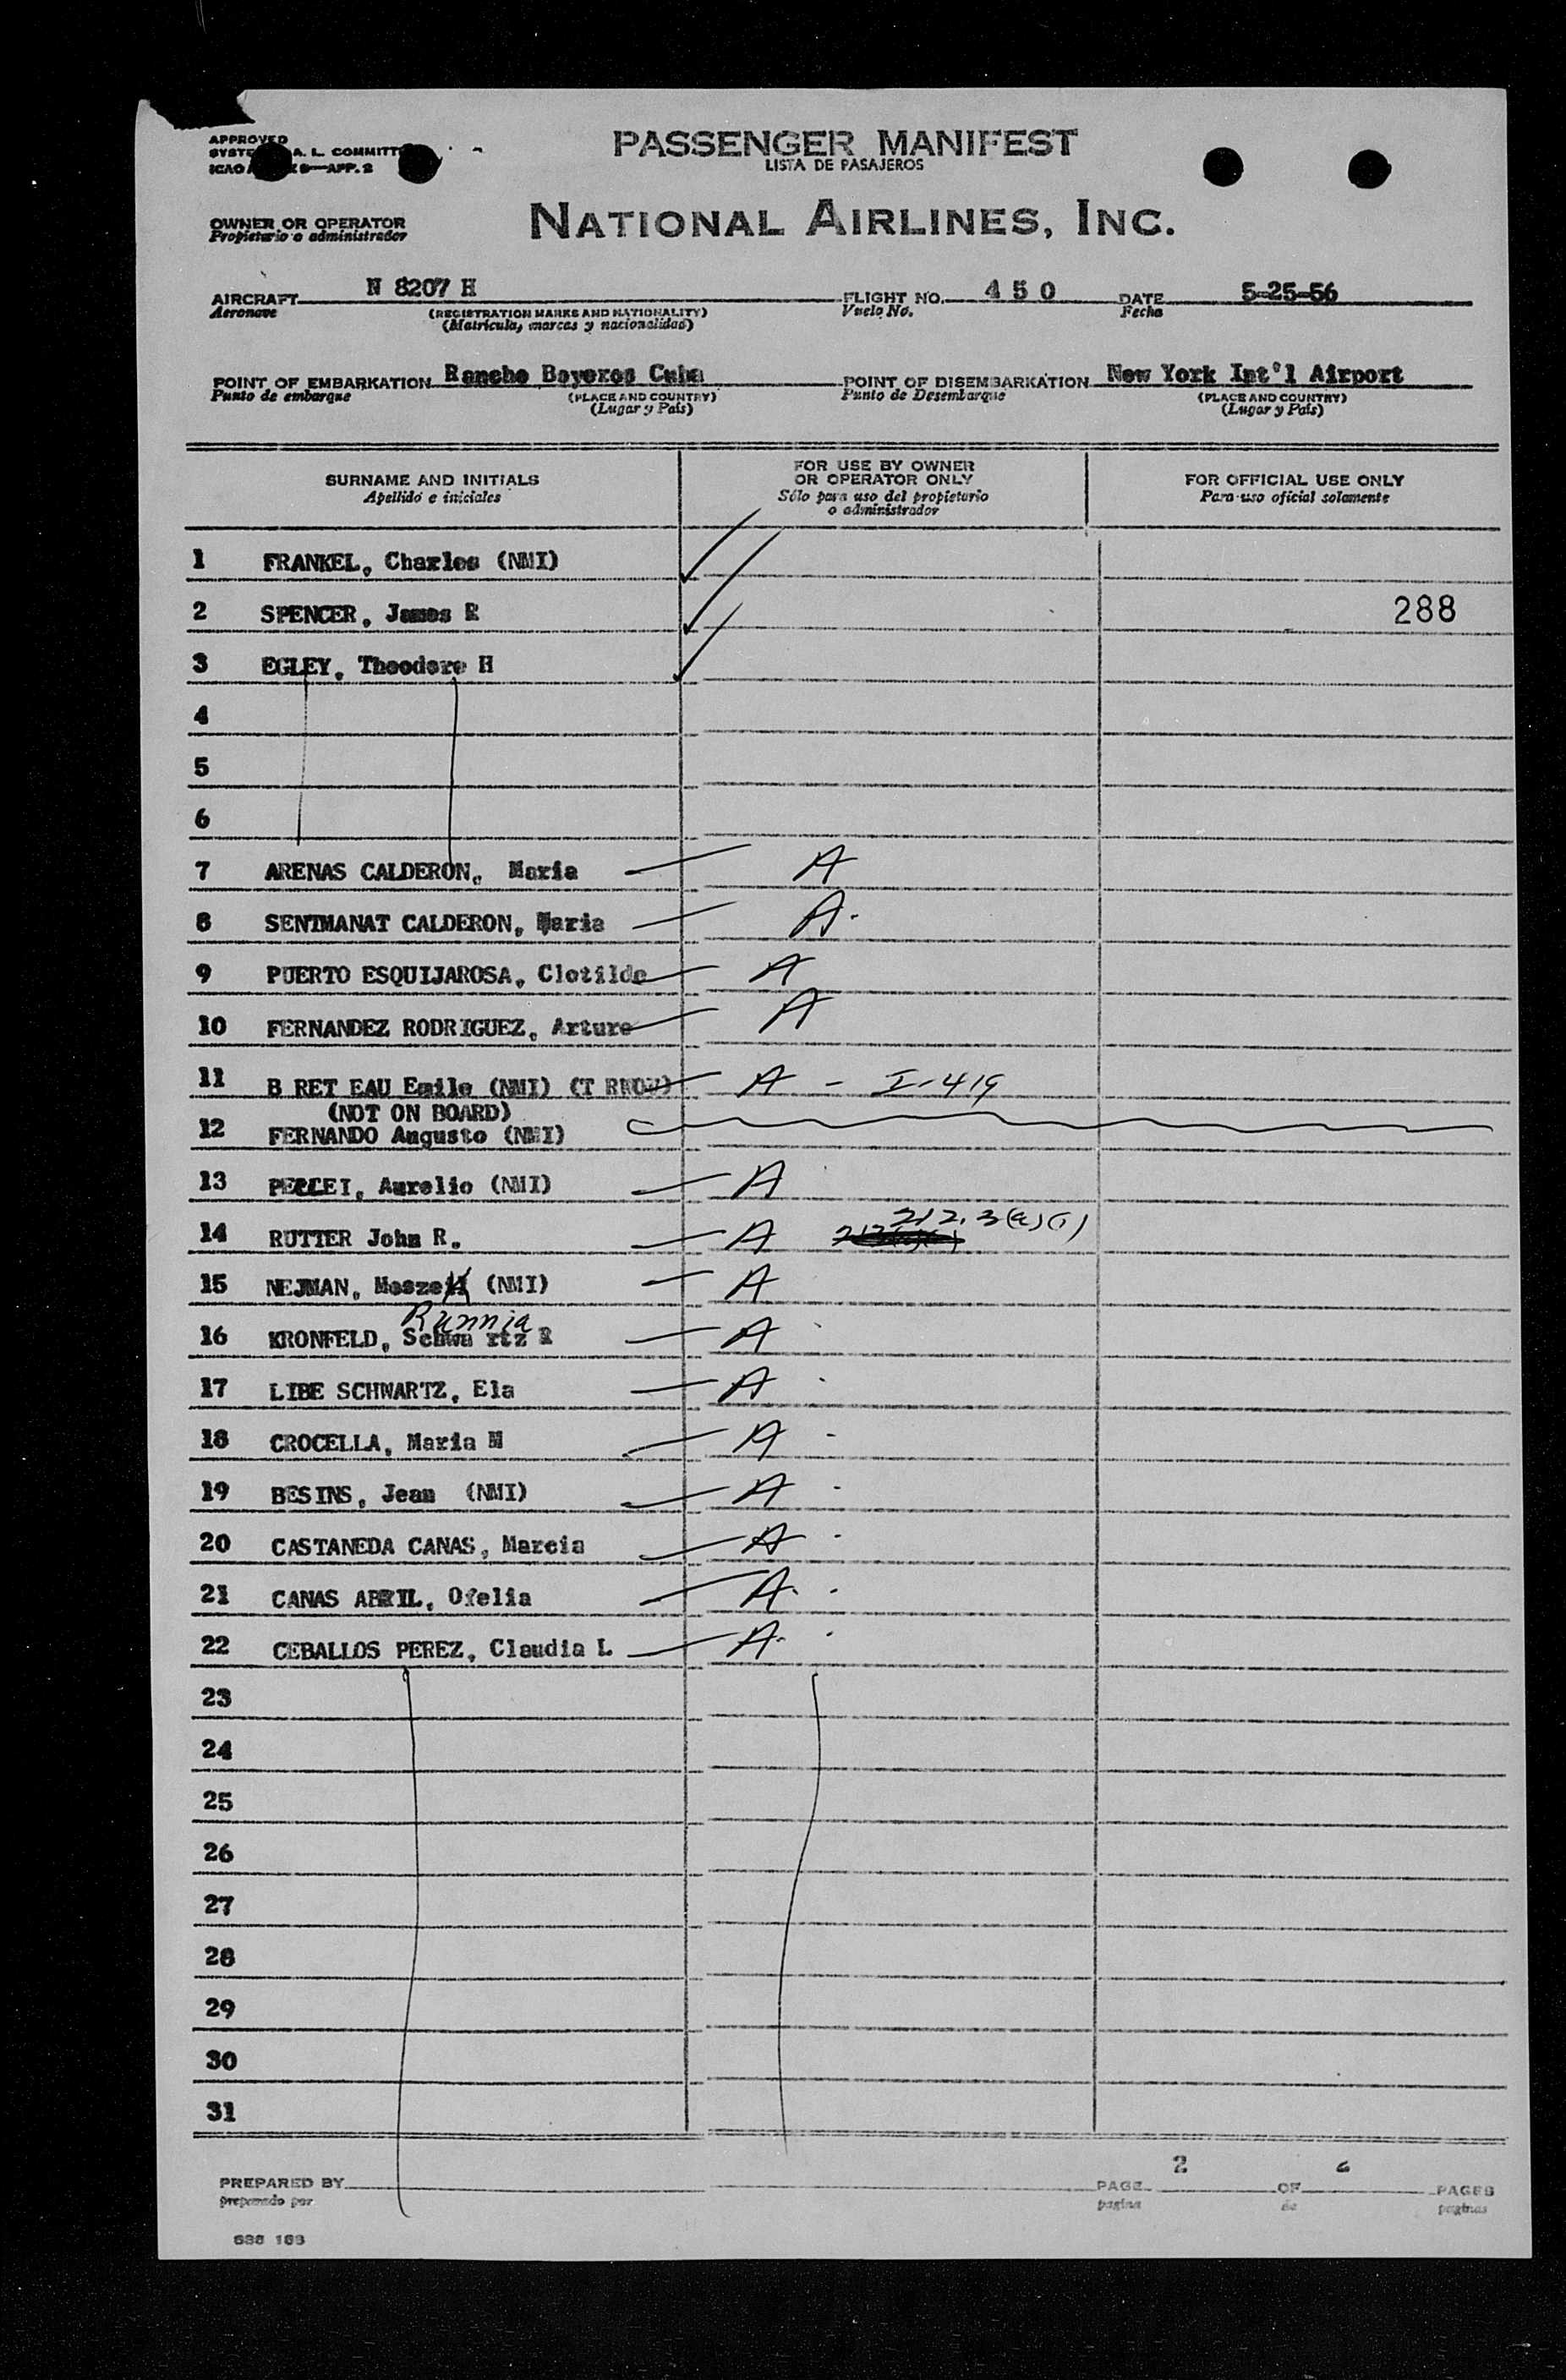 APPROVED
A. L. COMMITT
APP. 2
PASSENGER MANIFEST
LISTA DE PASAJEROS
OWNER OR OPERATOR
Propietario o administrador
NATIONAL AIRLINES, INC.
AIRCRAFT N 8207 H FLIGHT NO. 4 5 0 DATE 5-25-56
Aeronave (REGISTRATION MARKS AND NATIONALITY) Vuelo No. Fecha
(Matrícula, marcas y nacionalidad)
POINT OF EMBARKATION Rancho Boyeros Cuba POINT OF DISEMBARKATION New York Int'l Airport
Punto de embarque (PLACE AND COUNTRY) Punto de Desembarque (PLACE AND COUNTRY)
(Lugar y País) (Lugar y País)
SURNAME AND INITIALS
Apellido e iniciales
FOR USE BY OWNER
OR OPERATOR ONLY
Sólo para uso del propietario
o administrador
FOR OFFICIAL USE ONLY
Para uso oficial solamente
1 FRANKEL, Charles (NMI)
2 SPENCER, James R 288
3 EGLEY, Theodore H
4
5
6
7 ARENAS CALDERON, Maria A
8 SENTMANAT CALDERON, Maria A.
9 PUERTO ESQUIJAROSA, Clotilde A
10 FERNANDEZ RODRIGUEZ, Arturo A
11 B RET EAU Emile (NMI) A - I-419
(NOT ON BOARD)
12 FERNANDO Augusto (NMI)
13 PELLEI, Aurelio (NMI) A
14 RUTTER John R. A 212.3(a)(1)
15 NEJMAN, Mosze (NMI) A
Runnia
16 KRONFELD, Schwa rtz R A
17 LIBE SCHWARTZ, Ela A
18 CROCELLA, Maria M A
19 BESINS, Jean (NMI) A
20 CASTANEDA CANAS, Marcia A
21 CANAS ABRIL, Ofelia A
22 CEBALLOS PEREZ, Claudia L A
23
24
25
26
27
28
29
30
31
PREPARED BY PAGE 2 OF PAGES
preparado por pagina de paginas